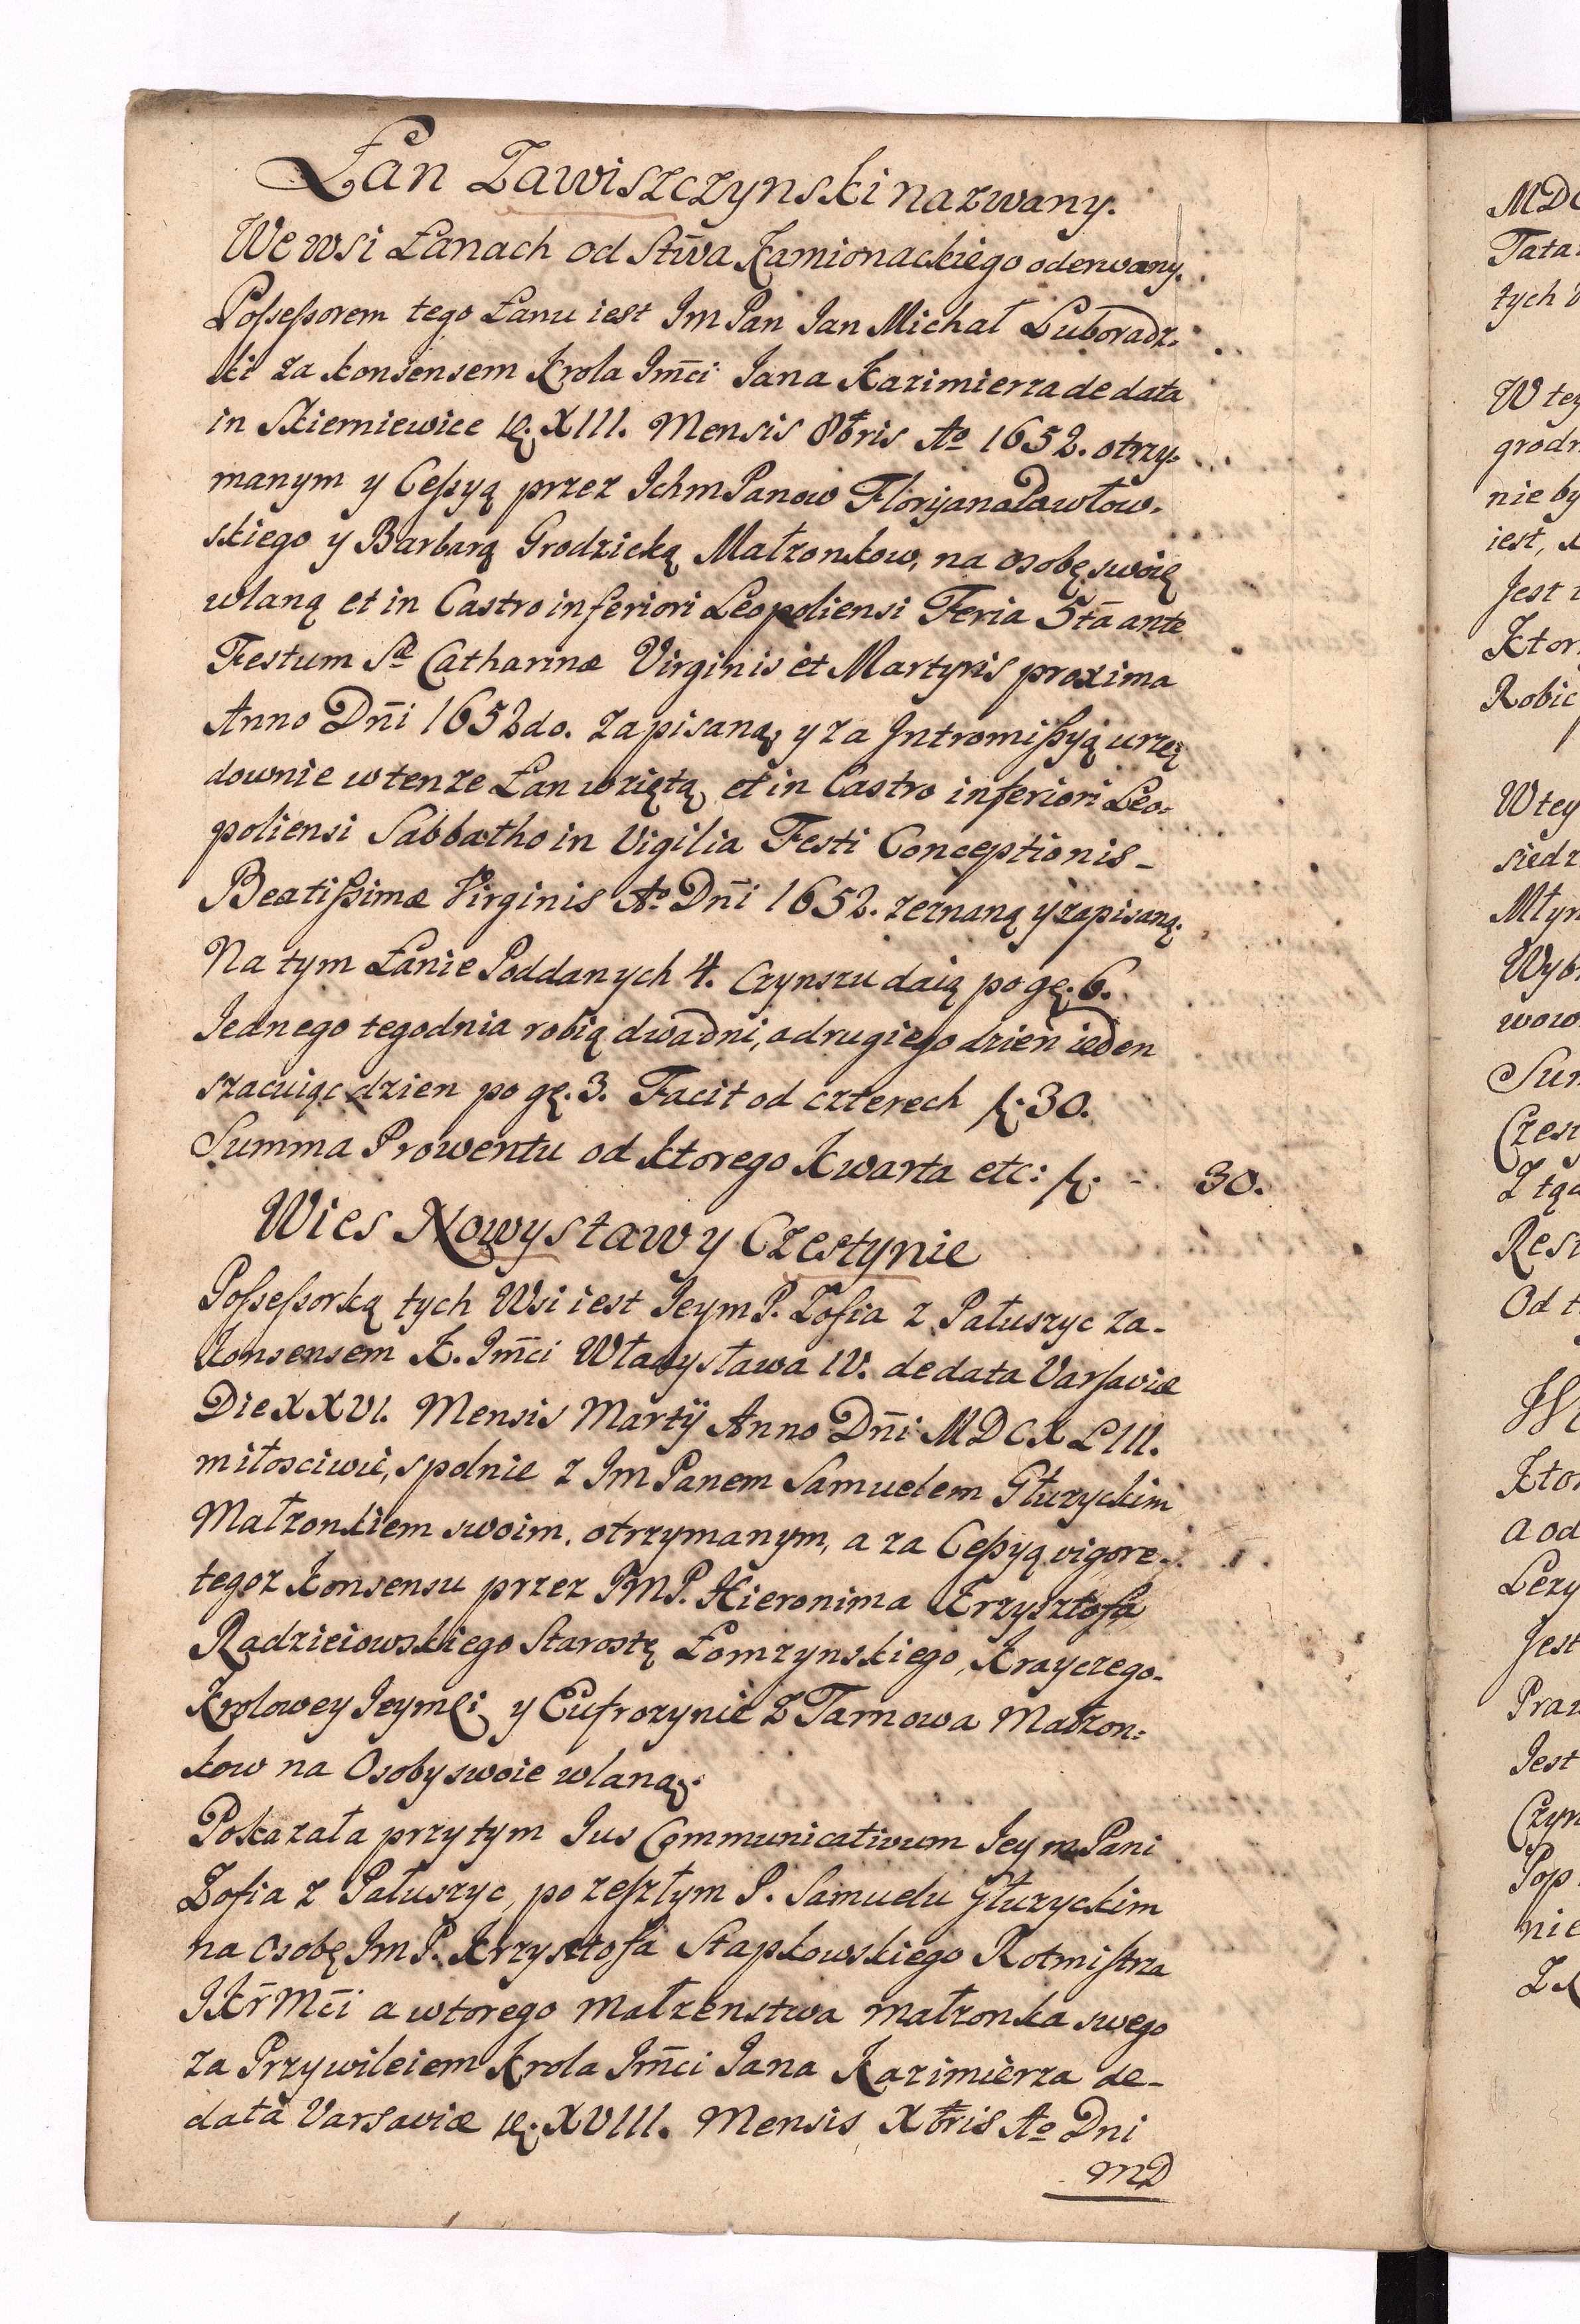 Łan Zawiszczynski nazwany.
We wsi Łanach od Stwa Kamionackiego oderwany.
Possessorem tego Łanu iest Jm Pan Jan Michał Luboradz-
ki za konsensem Krola Jmci Jana Kazimierza de data
in Skierniewice d. XIII. Mensis 8bris Ao 1652. otrzy-
manym y Cessyą przez Ichm Panow Floryana Pawłow-
skiego y Barbarą Grodzicką Małzonkow, na osobę swoię
wlaną et in Castro inferiori Leopoliensi Feria 5ta ante
Festum Sæ Catharinæ Virginis et Martyris proxima
Anno Dni 1652do. zapisaną, y za Intromissyą urzę
downie w tenze Łan wziętą, et in Castro inferiori Leo-
poliensi Sabbatho in Vigilia Festi Conceptionis-
Beatissimæ Virginis Ao Dni 1652. zeznaną y zapisaną.
Na tym Łanie Poddanych 4. Czynszu daią po gr. 6.
Jednego tegodnia robią dwa dni, a drugiego dzien ieden
szacuiąc dzien po gr. 3. Facit od czterech f. 30.
Summa Prowentu od ktorego Kwarta etc: f. - 30.
Wies Nowystaw y Czestynie
Possessorką tych Wsi iest Jeym P. Zofia z Pałuszyc za-
konsensem K. Jmci Władysława IV. de data Varsaviæ
Die XXVI. Mensis Martij Anno Dni MDCXLIII.
miłosciwie, spolnie z Jm Panem Samuelem Głuzyckim
Małzonkiem swoim, otrzymanym, a za Cessyą vigore-
tegoz Konsensu przez JMP. Hieronima Krzysztofa
Radzieiowskiego Starostę Łomzynskiego, Krayczego-
Krolowey Jeymci, y Eufrozynie z Tarnowa Małzon-
kow na Osoby swoie wlaną.
Pokazała przytym Jus Communicativum Jeym Pani
Zofia z Pałuszyc, po zeszłym P. Samuelu Głuzyckim
na osobę Jm P. Krzysztofa Stapkowskiego Rotmistrza
JKrMci a wtorego Małzenstwa małzonka swego
za Przywileiem Krola Jmci Jana Kazimierza de-
data Varsaviæ d. XVIII. Mensis Xbris Ao Dni
MD